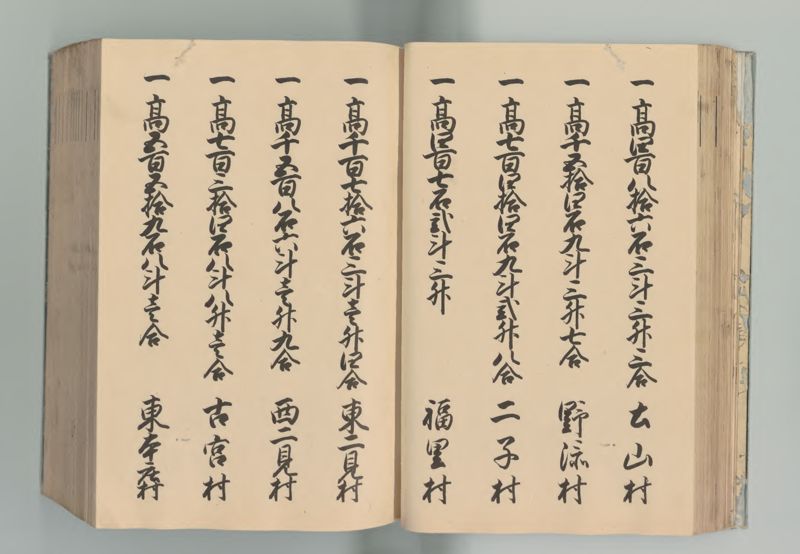 一高四百八拾六石三斗三升三合 古山村
一高千五拾四石九斗三升七合 野添村
一高七百四拾四石九斗弐升八合 二子村
一高四百七石弐斗三升 福里村
一高千百七拾六石三斗壱升四合 東二見村
一高千五百八石六斗壱升九合 西二見村
一高七百三拾四石八斗八升壱合 古宮村
一高五百五拾九石八斗壱合 東本庄村